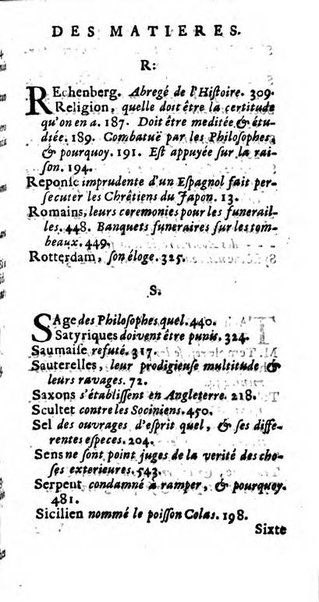 DES MATIERES.
R:
REchenberg. Abregé de l'Histoire. 309.
Religion, quelle doit être la certitude
qu'on en a. 187. Doit être meditée & étu-
diée. 189. Combatuë par les Philosophes,
& pourquoy. 191. Est appuyée sur la rai-
son. 194.
Reponse imprudente d'un Espagnol fait per-
secuter les Chrétiens du Japon. 13.
Romains, leurs ceremonies pour les funerail-
les. 448. Banquets funeraires sur les tom-
beaux. 449.
Rotterdam, son éloge. 325.
S.
SAge des Philosophes quel. 440.
Satyriques doivent être punis. 324.
Saumaise refuté. 317.
Sauterelles, leur prodigieuse multitude &
leurs ravages. 72.
Saxons s'établissent en Angleterre. 218.
Scultet contre les Sociniens. 450.
Sel des ouvrages d'esprit quel, & ses diffe-
rentes especes. 204.
Sens ne sont point juges de la verité des cho-
ses exterieures. 543.
Serpent condamné à ramper, & pourquoy.
481.
Sicilien nommé le poisson Colas. 198.
Sixte